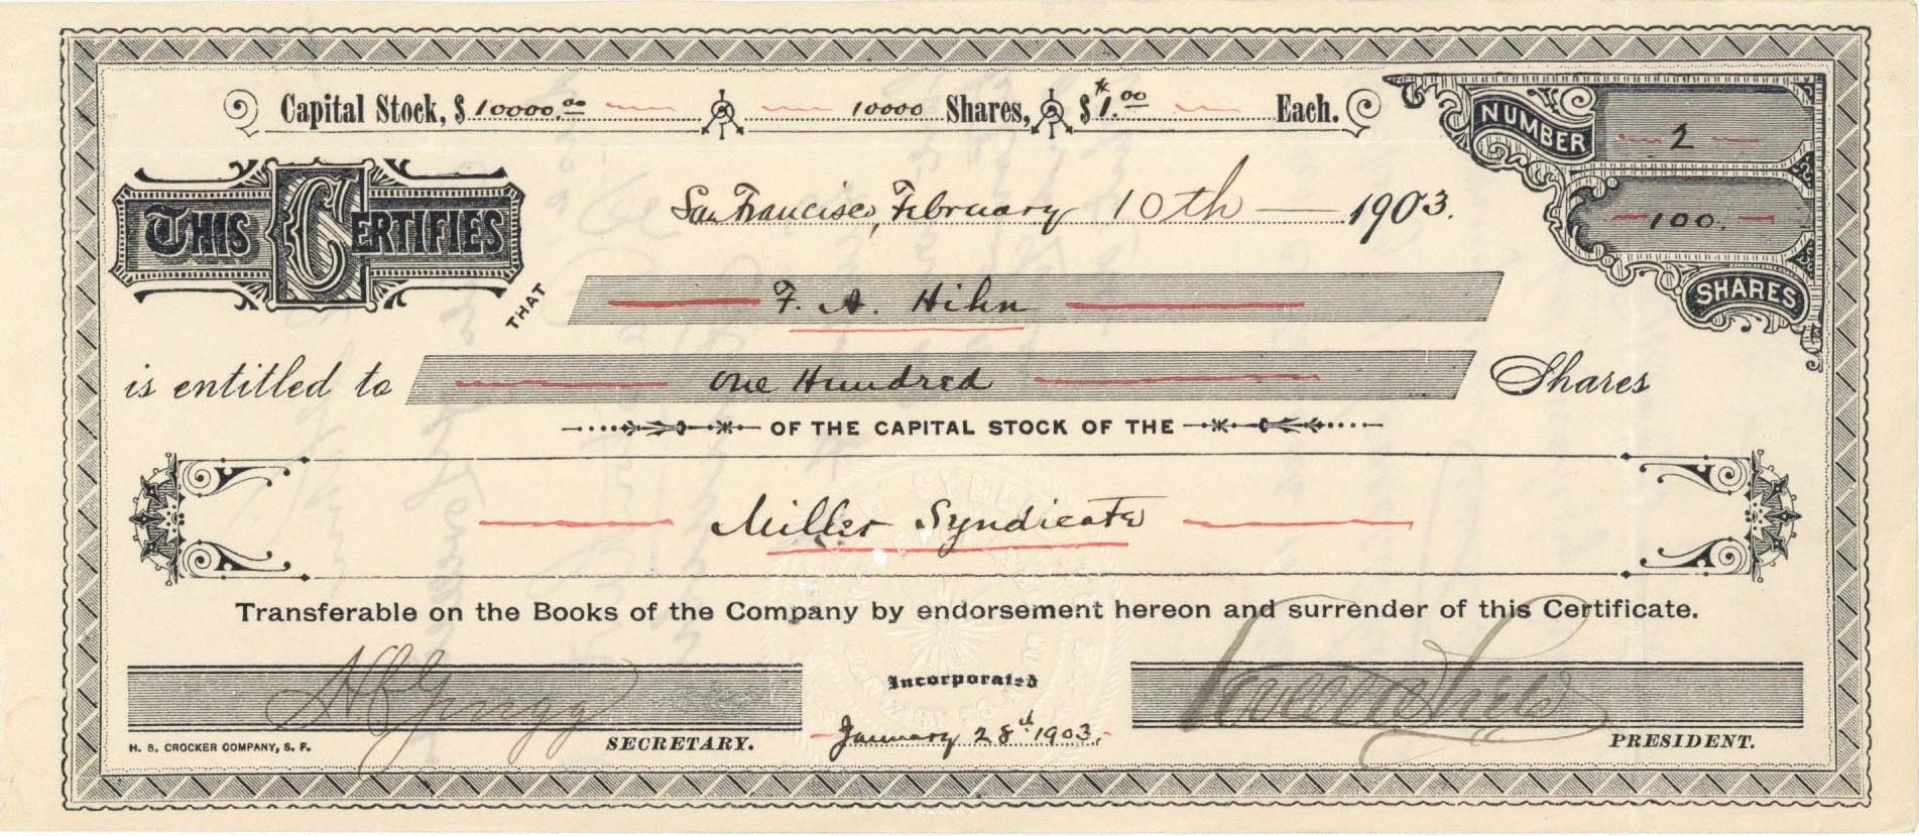 Capital Stock, $ 10000.00 10000 Shares, $ 1.00 Each.
NUMBER 2
San Francisco, February 10th 1903.
100.
SHARES
THIS CERTIFIES
THAT F. A. Hihn
is entitled to One Hundred Shares
OF THE CAPITAL STOCK OF THE
Miller Syndicate
Transferable on the Books of the Company by endorsement hereon and surrender of this Certificate.
Incorporated
January 28th 1903.
SECRETARY.
PRESIDENT.
H. S. CROCKER COMPANY, S. F.